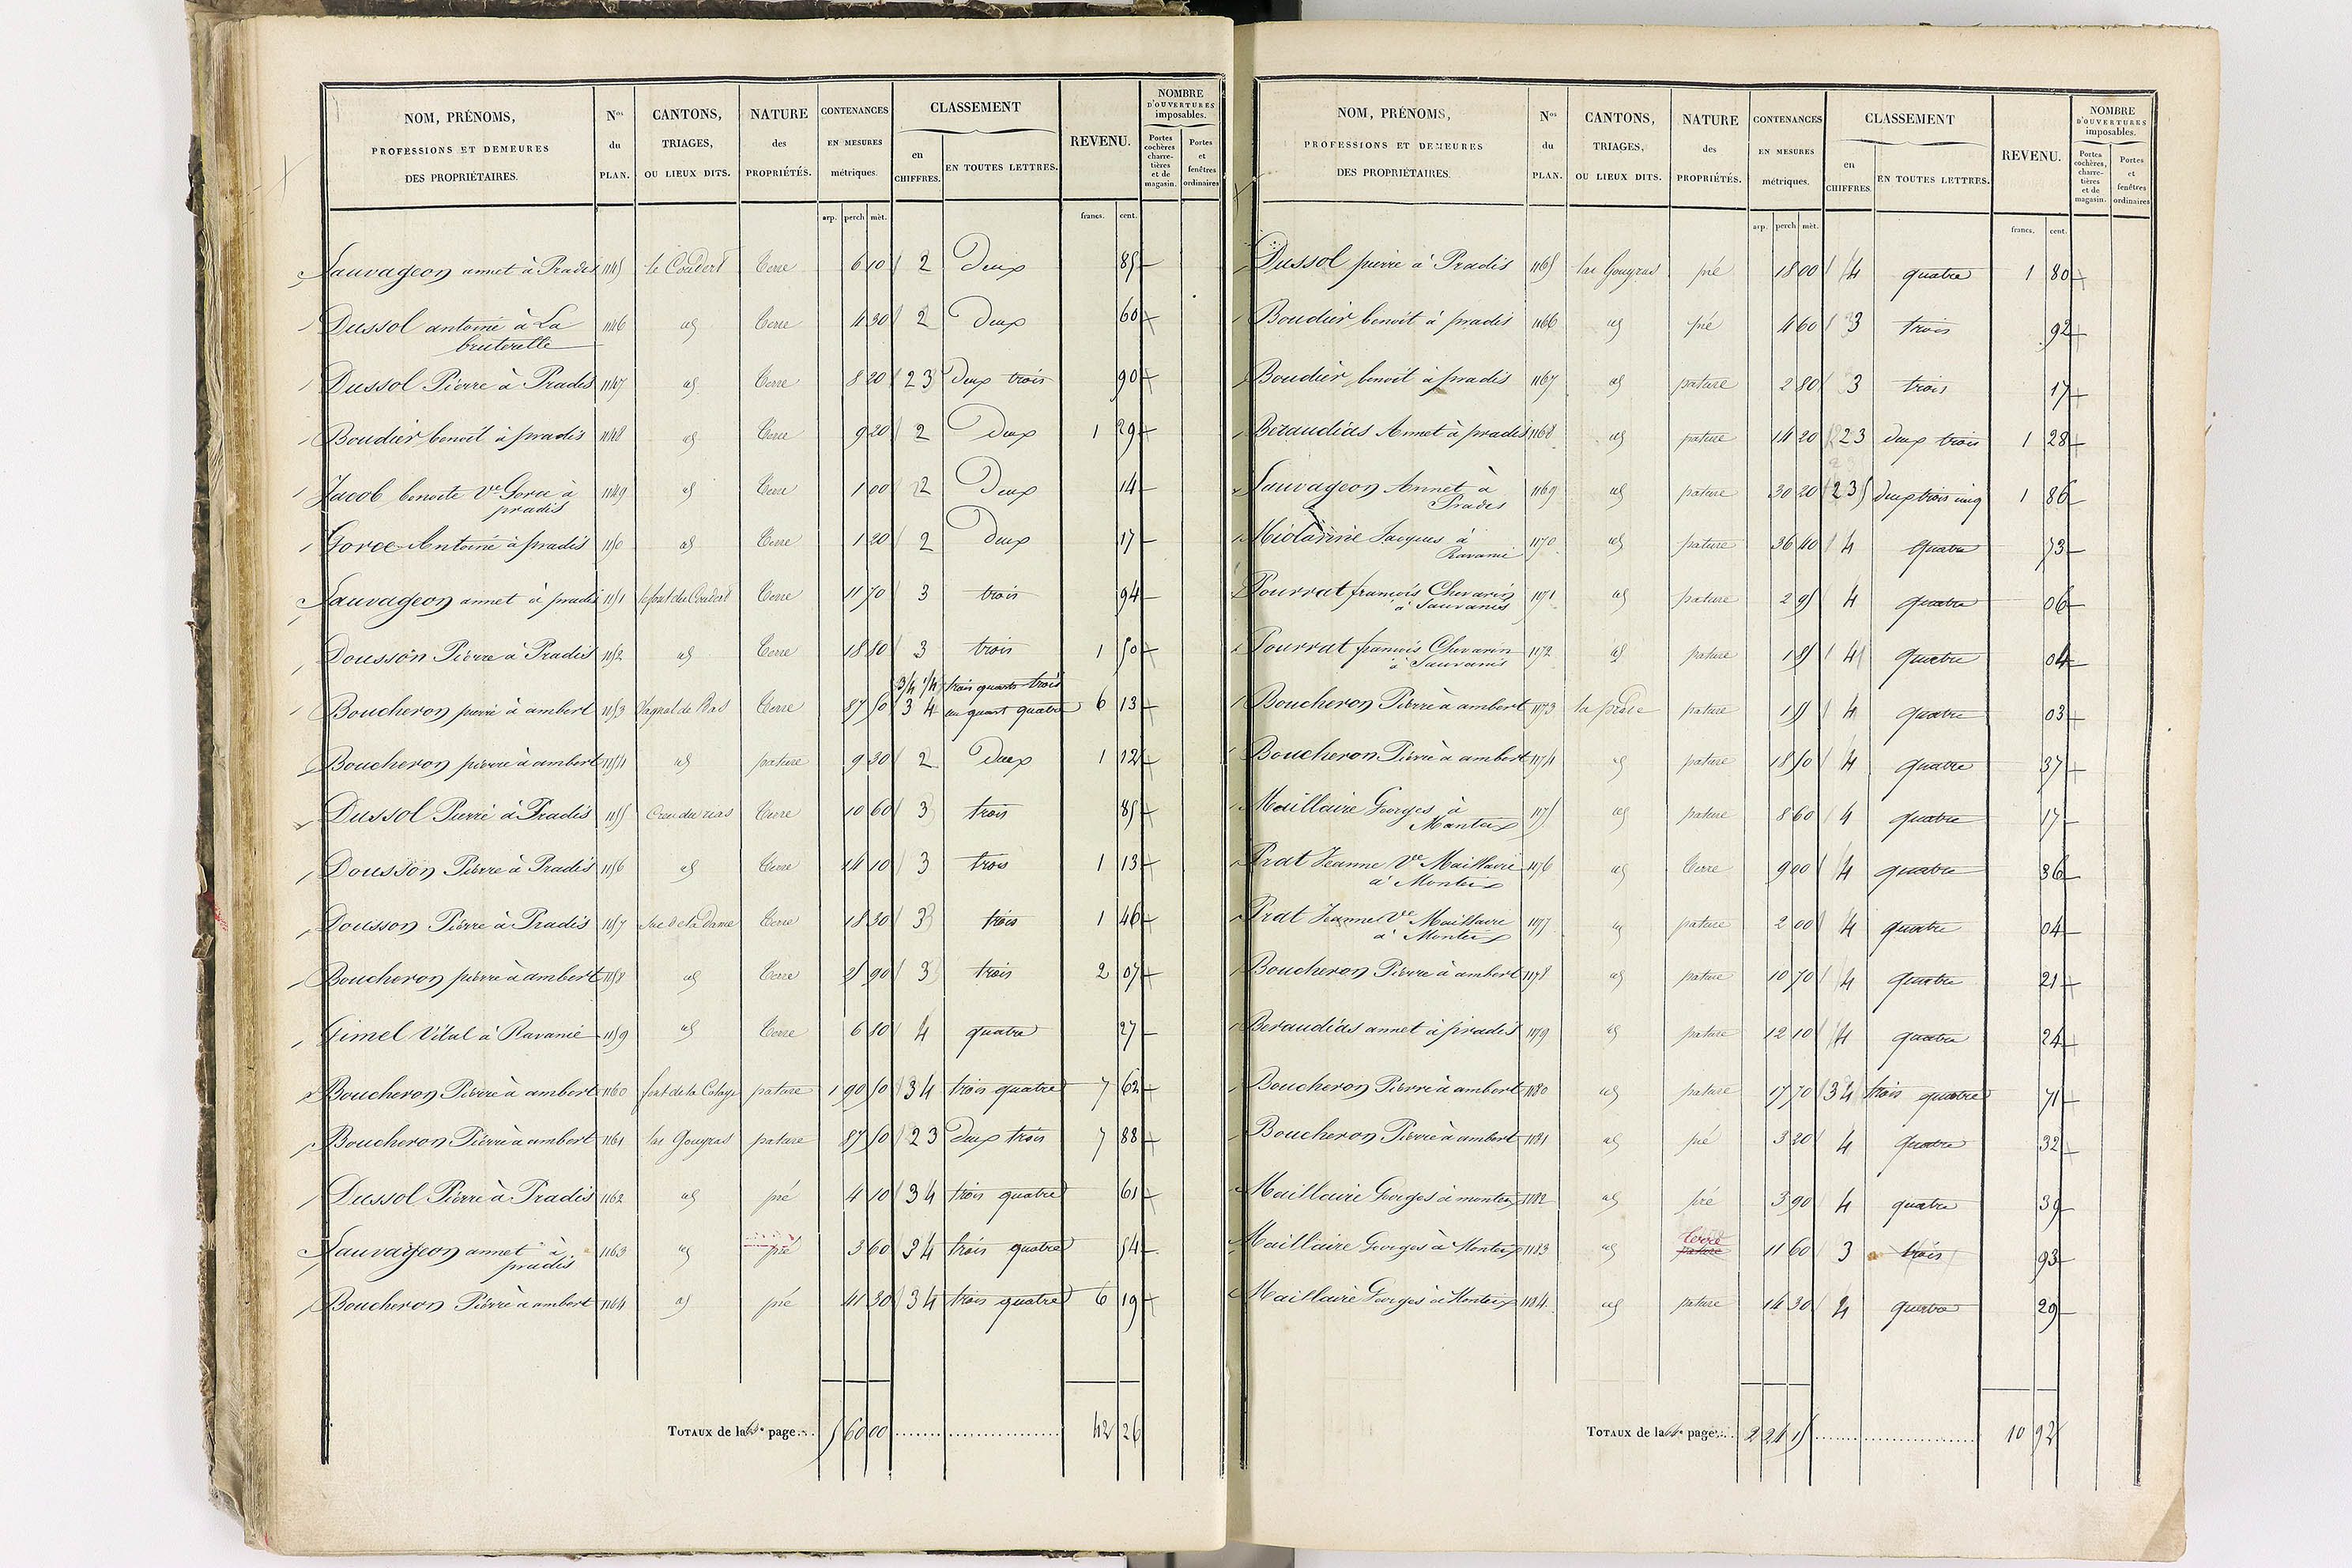 NOM, PRÉNOMS, PROFESSIONS ET DEMEURES DES PROPRIÉTAIRES. Nos du PLAN. CANTONS, TRIAGES, OU LIEUX DITS. NATURE des PROPRIÉTÉS. CONTENANCES EN MESURES métriques. CLASSEMENT en CHIFFRES. EN TOUTES LETTRES. REVENU. NOMBRE D'OUVERTURES imposables. Portes cochères, charretières et de magasin. Portes et fenêtres ordinaires
arp. perch mèt. francs. cent.
Sauvageon annet à Prades 1145 le Coudert Terre 6 10 2 Deux 85
Dussol antoine à La bruterelle 1146 id Terre 4 30 2 Deux 60
Dussol Pierre à Pradis 1147 id Terre 8 20 2 3 deux trois 90
Boudier benoit à pradis 1148 id Terre 9 20 2 Deux 1 29
Jacob benoite Ve Gorce à pradis 1149 id Terre 1 00 2 Deux 14
Gorce Antoine à pradis 1150 id Terre 1 20 2 Deux 17
Sauvageon annet à pradis 1151 le font du Coudert Terre 11 70 3 trois 94
Dousson Pierre à Pradis 1152 id Terre 18 80 3 trois 1 50
Boucheron pierre à ambert 1153 Vagnal de Bas Terre 87 50 3/4 1/4 3 4 trois quarts trois un quart quatre 6 13
Boucheron pierre à ambert 1154 id pature 9 30 2 Deux 1 12
Dussol Pierre à Pradis 1155 Terre 10 60 3 trois 85
Dousson Pierre à Pradis 1156 id Terre 14 10 3 trois 1 13
Dousson Pierre à Pradis 1157 Suc de la Dame Terre 18 30 3 trois 1 46
Boucheron pierre à ambert 1158 id Terre 25 90 3 trois 2 07
Gimel Vital à Ravanie 1159 id Terre 6 80 4 quatre 27
Boucheron Pierre à ambert 1160 font de la pature 1 90 50 3 4 trois quatre 7 62
Boucheron Pierre à ambert 1161 las Gouyras pature 87 50 2 3 deux trois 7 88
Dussol Pierre à Pradis 1162 id pré 4 10 3 4 trois quatre 61
Sauvageon annet à pradis 1163 id pré 3 60 3 4 trois quatre 54
Boucheron Pierre à ambert 1164 id pré 41 30 3 4 trois quatre 6 19
TOTAUX de la 63e page... 5 60 00 42 26
NOM, PRÉNOMS, PROFESSIONS ET DEMEURES DES PROPRIÉTAIRES. Nos du PLAN. CANTONS, TRIAGES, OU LIEUX DITS. NATURE des PROPRIÉTÉS. CONTENANCES EN MESURES métriques. CLASSEMENT en CHIFFRES. EN TOUTES LETTRES. REVENU. NOMBRE D'OUVERTURES imposables. Portes cochères, charretières et de magasin. Portes et fenêtres ordinaires
arp. perch mèt. francs. cent.
Dussol pierre à Pradis 1165 las Gouyras pré 18 00 4 quatre 1 80
Boudier benoit à pradis 1166 id pré 4 60 3 trois 92
Boudier benoit à pradis 1167 id pature 2 80 3 trois 17
Beraudias Annet à pradis 1168 id pature 14 20 2 3 deux trois 1 28
Sauvageon Annet à Prades 1169 id pature 30 20 2 3 5 deux trois cinq 1 86
Miolanne Jacques à Ravanie 1170 id pature 36 40 4 quatre 73
Pourrat françois Chevarin à Sauvanis 1171 id pature 2 95 4 quatre 06
Pourrat françois Chevarin à Sauvanis 1172 id pature 1 85 4 quatre 04
Boucheron Pierre à ambert 1173 pature 1 55 4 quatre 03
Boucheron Pierre à ambert 1174 id pature 18 50 4 quatre 37
Maillaire Georges à Monteix 1175 id pature 8 60 4 quatre 17
Prat Jeanne Ve Maillaire à Monteix 1176 id Terre 9 00 4 quatre 36
Prat Jeanne Ve Maillaire à Monteix 1177 id pature 2 00 4 quatre 04
Boucheron Pierre à ambert 1178 id pature 10 70 4 quatre 21
Beraudias annet à pradis 1179 id pature 12 10 4 quatre 24
Boucheron Pierre à ambert 1180 id pature 17 70 3 4 trois quatre 71
Boucheron Pierre à ambert 1181 id pré 3 20 4 quatre 32
Maillaire Georges à monteix 1182 id pré 3 90 4 quatre 39
Maillaire Georges à Monteix 1183 id terre pature 11 60 3 trois 93
Maillaire Georges à Monteix 1184 id pature 14 30 4 quatre 29
TOTAUX de la 64e page... 2 24 15 10 92